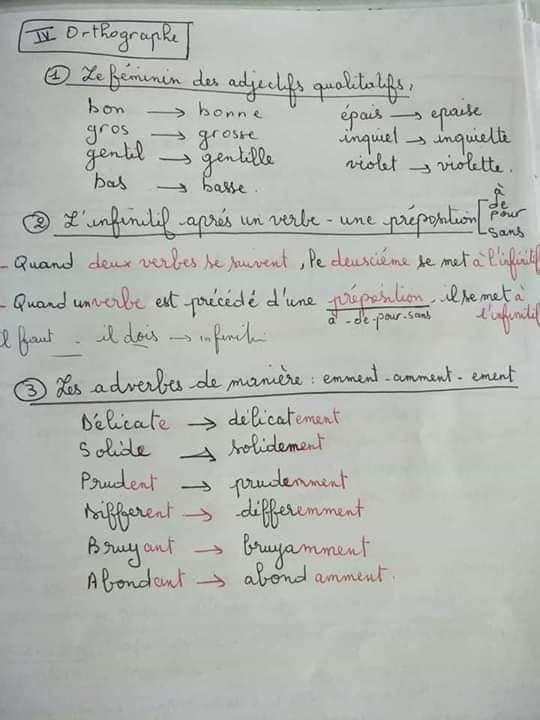 IV Orthographe
① Le féminin des adjectifs qualitatifs,
bon → bonne épais → epaise
gros → grosse inquiet → inquiette
gentil → gentille violet → violette.
bas → basse.
② L'infinitif aprés un verbe - une préposition [à de pour sans
- Quand deux verbes se suivent, le deusciéme se met à l'infinitif
- Quand un verbe est précédé d'une préposition. il se met à l'infinitif
à - de - pour - sans
il faut . il dois → infiniti
③ Les adverbes de manière : emment - amment - ement
Délicate → délicatement
Solide → solidement
Prudent → prudemment
Different → différemment
Bruyant → bruyamment
Abondant → abondamment.